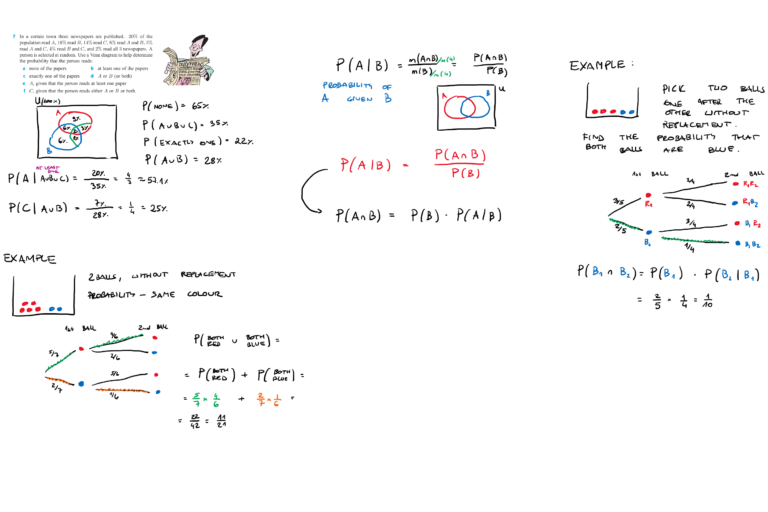 7 In a certain town three newspapers are published. 20% of the
population read A, 16% read B, 14% read C, 8% read A and B, 5%
read A and C, 4% read B and C, and 2% read all 3 newspapers. A
person is selected at random. Use a Venn diagram to help determine
the probability that the person reads:
a none of the papers b at least one of the papers
c exactly one of the papers d A or B (or both)
e A, given that the person reads at least one paper
f C, given that the person reads either A or B or both
U(100%)
A
B
P(NONE) = 65%
P(A∪B∪C) = 35%
P(EXACTLY ONE) = 22%
P(A∪B) = 28%
AT LEAST ONE
P(A | A∪B∪C) = 20%/35% = 4/7 = 57.1%
P(C | A∪B) = 7%/28% = 1/4 = 25%
P(A|B) = n(A∩B)/n(U) / n(B)/n(U) = P(A∩B)/P(B)
PROBABILITY OF
A GIVEN B
A B U
P(A|B) = P(A∩B)/P(B)
P(A∩B) = P(B) · P(A|B)
EXAMPLE:
PICK TWO BALLS
ONE AFTER THE
OTHER WITHOUT
REPLACEMENT.
FIND THE PROBABILITY THAT
BOTH BALLS ARE BLUE.
1st BALL 2nd BALL
3/5 R1 2/4 R1R2
2/4 R1B2
2/5 B1 3/4 B1R2
1/4 B1B2
P(B1 ∩ B2) = P(B1) · P(B2|B1)
= 2/5 · 1/4 = 1/10
EXAMPLE
2 BALLS, WITHOUT REPLACEMENT
PROBABILITY – SAME COLOUR
1st BALL 2nd BALL
5/7 4/6
2/6
2/7 5/6
1/6
P(BOTH RED ∪ BOTH BLUE) =
= P(BOTH RED) + P(BOTH BLUE) =
= 5/7 × 4/6 + 2/7 × 1/6 =
= 22/42 = 11/21